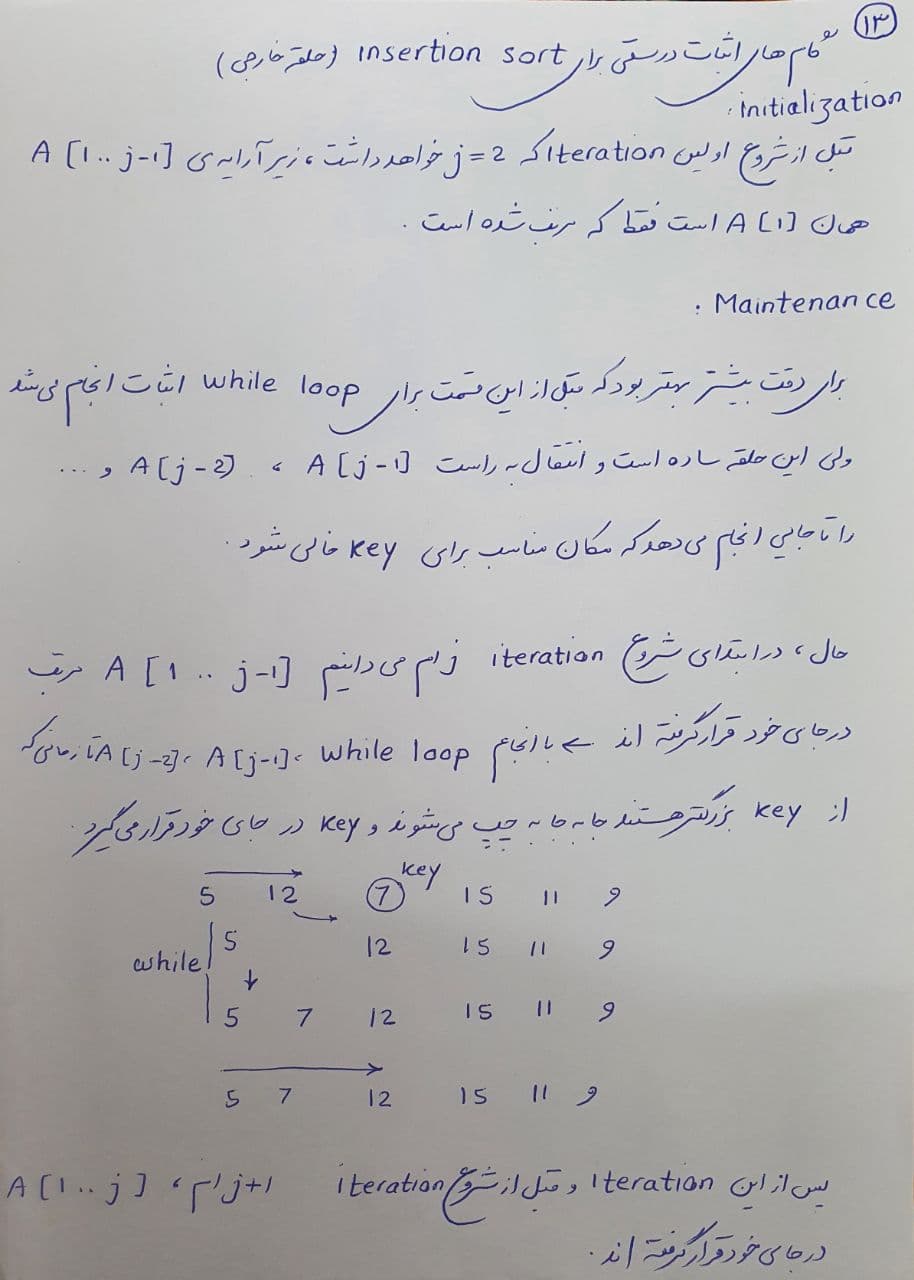 ۱۳
گام های اثبات درستی برای insertion sort (حلقه خارجی)
initialization:
قبل از شروع اولین Iteration که j=2 خواهد داشت، زیر آرایه ی A [1 .. j-1]
همان A [1] است فقط که مرتب شده است.
Maintenance:
برای دقت بیشتر بهتر بود که قبل از این قسمت برای while loop اثبات انجام می شد
ولی این حلقه ساده است و انتقال به راست A [j-1] ، A [j-2] و ...
را تا جایی انجام می دهد که مکان مناسب برای key خالی شود.
حال، در ابتدای شروع iteration j ام می دانیم A [1 .. j-1] مرتب
در جای خود قرار گرفته اند ← با انجام while loop، A [j-1]، A [j-2] تا زمانی که
از key بزرگتر هستند جا به جا به چپ می شوند و key در جای خود قرار می گیرد.
key
5 12 7 15 11 9
5 12 15 11 9
while
5 7 12 15 11 9
5 7 12 15 11 9
پس از این Iteration و قبل از شروع iteration j+1 ام، A [1 .. j]
در جای خود قرار گرفته اند.